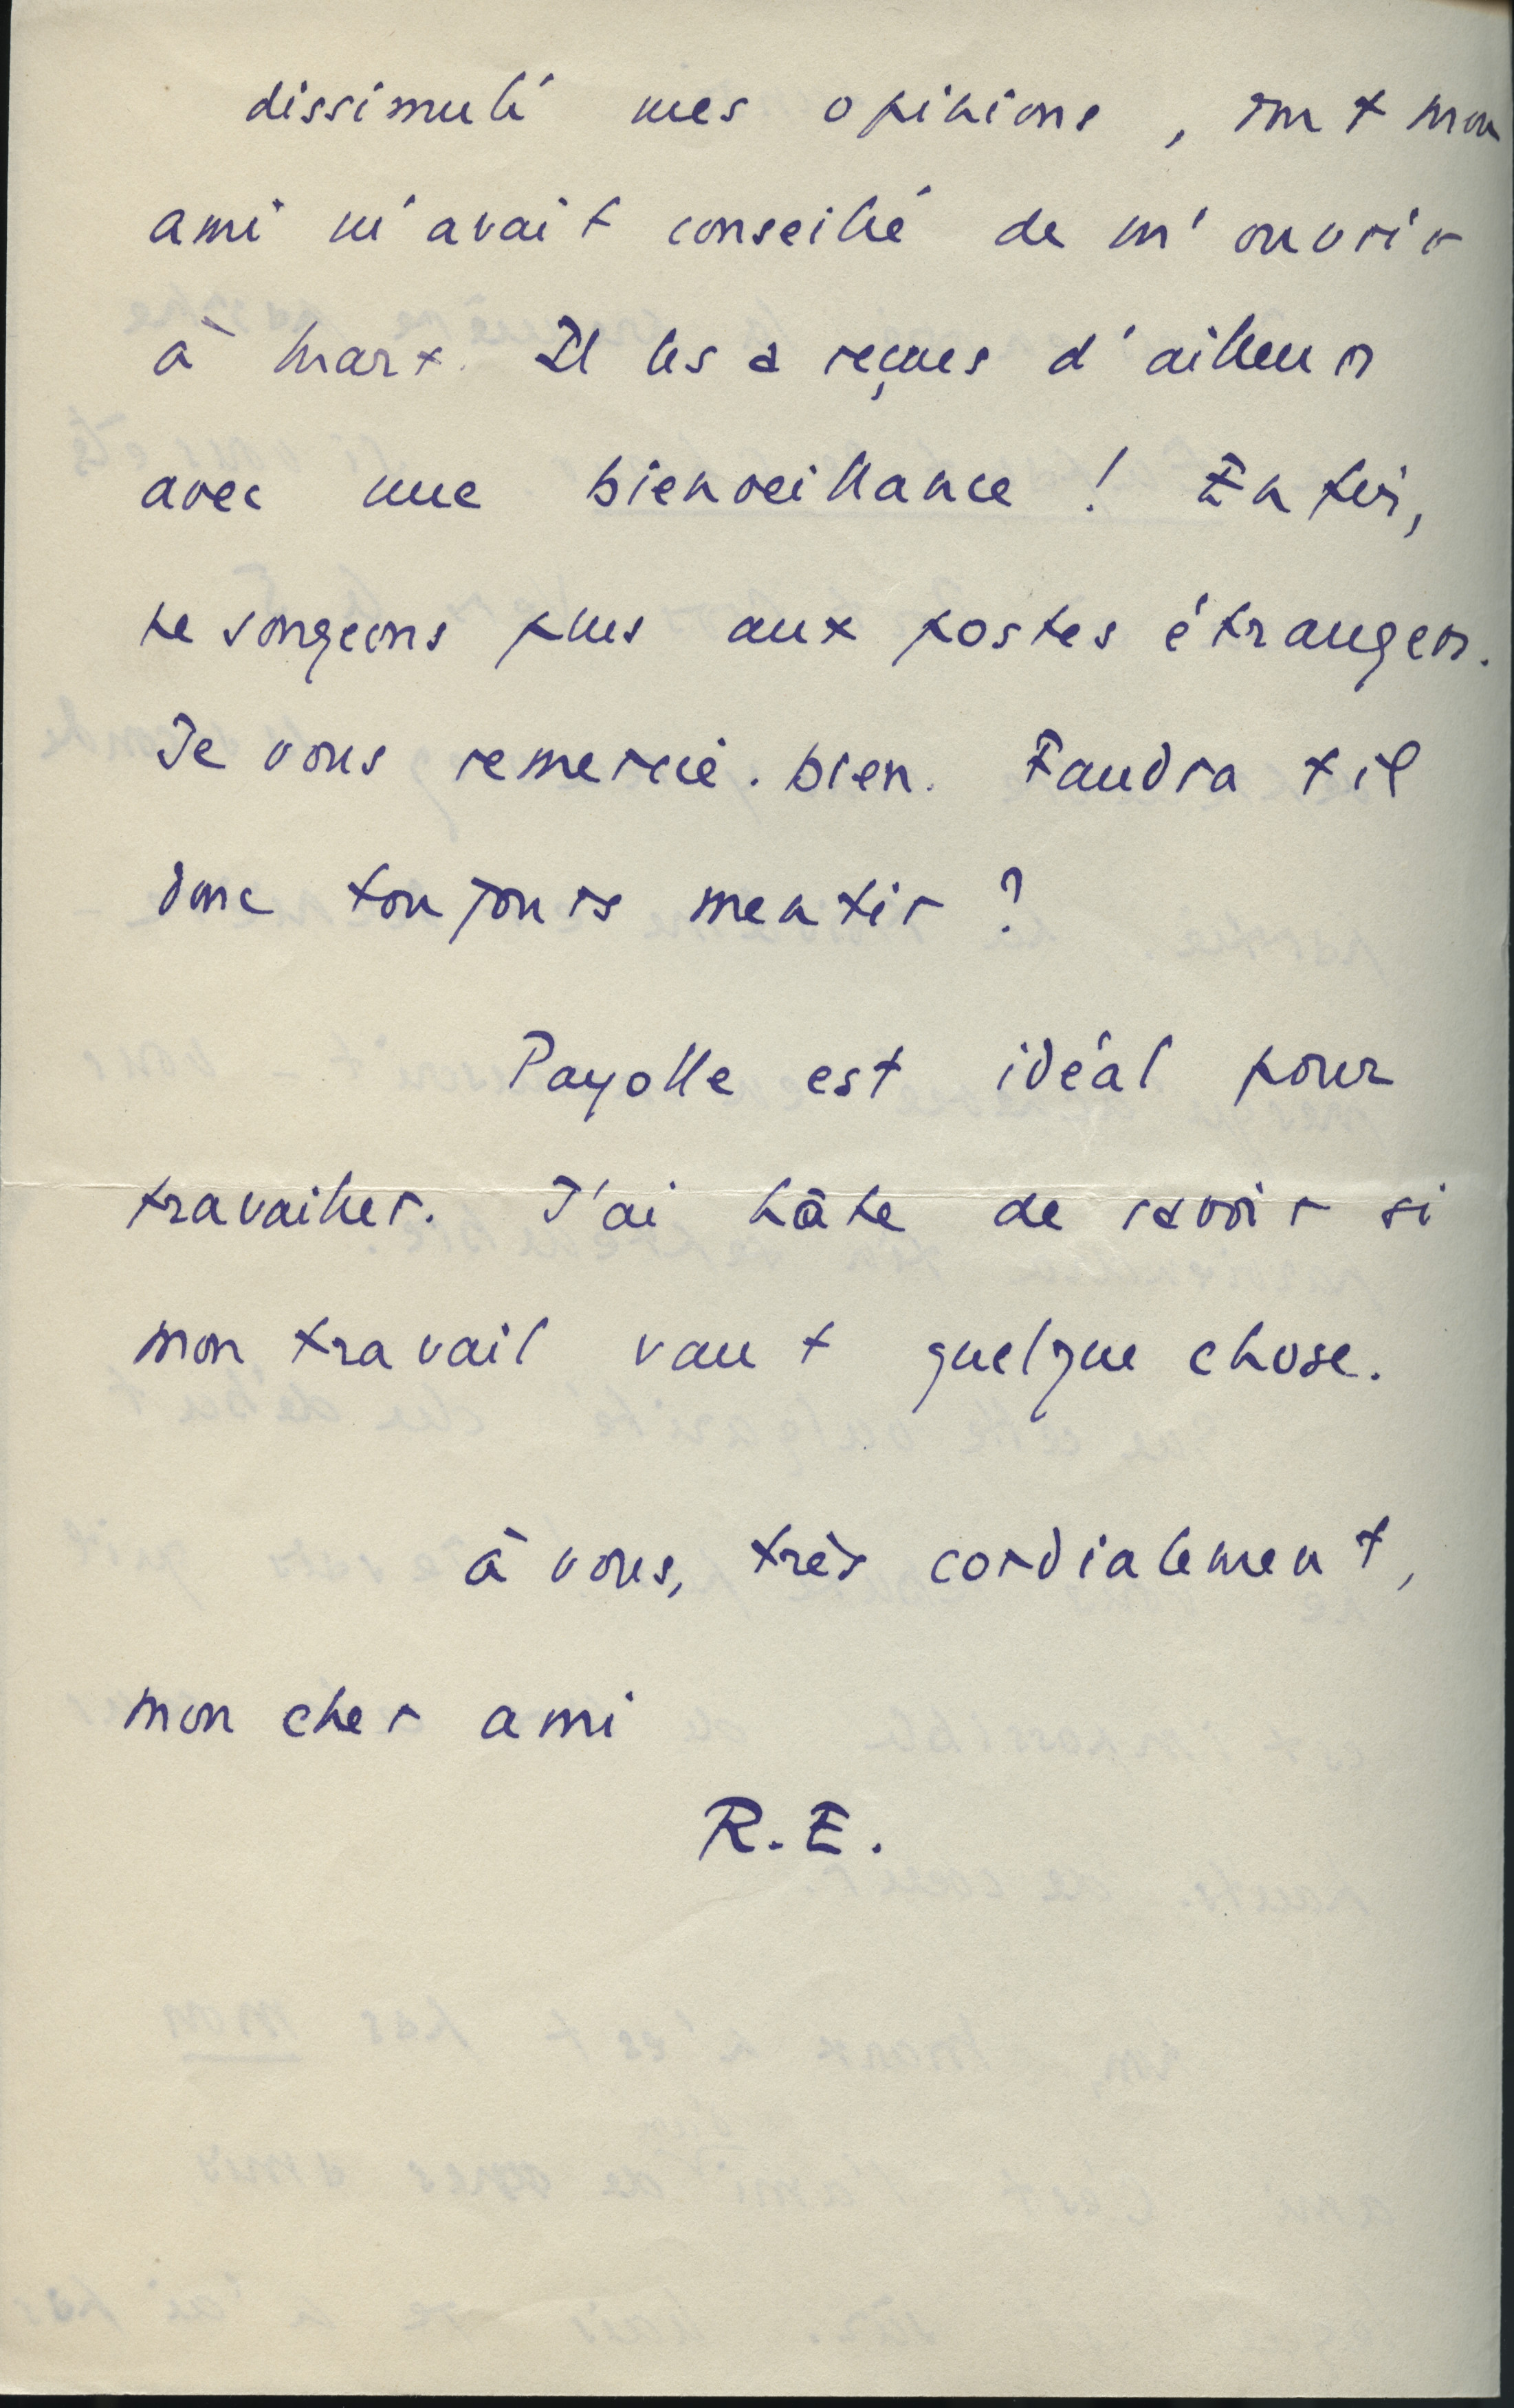 dissimulé mes opinions, dont mon
ami m'avait conseillé de m'ouvrir
à Marx. Il les a reçues d'ailleurs
avec une bienveillance ! Enfin,
ne songeons plus aux postes étrangers.
Je vous remercie. bien. Faudra til
donc toujours mentir ?
Payolle est idéal pour
travailler. J'ai hâte de savoir si
mon travail vaut quelque chose.
à vous, très cordialement,
mon cher ami
R.E.